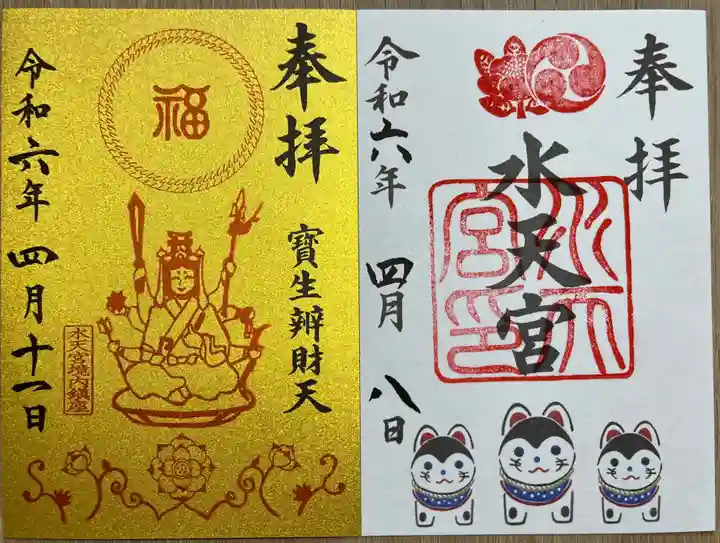 奉拝
寶生辨財天
福
水天宮境内鎮座
令和六年 四月 十一日
奉拝
水天宮
水天宮印
令和六年 四月 八日